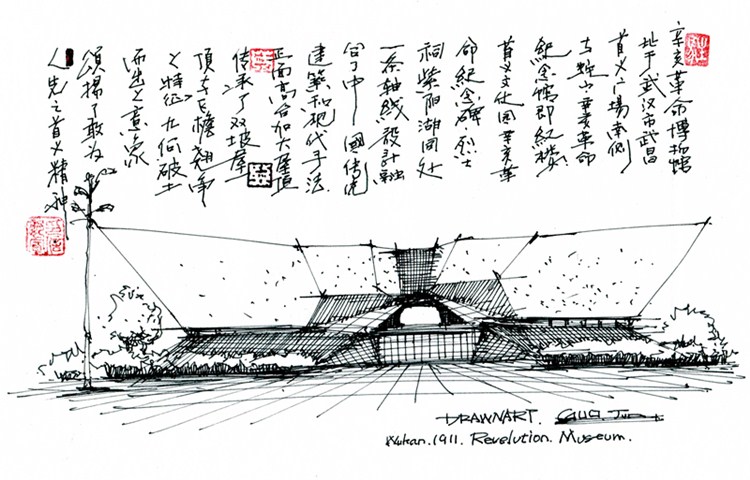 辛亥革命博物馆
址于武汉市武昌
首义广场南侧
与蛇山辛亥革命
纪念馆即红楼
首义文化园辛亥革
命纪念碑、烈士
祠紫阳湖同处
一条轴线设计融
合了中國传统
建築和现代手法.
正面高台加大屋顶
传承了双坡屋
頂与飞檐翘角
之特征几何破土
而出之意象
颂扬了敢为
人先之首义精神
DRAWNART. Guo. Jun
Wuhan.1911. Revolution. Museum.